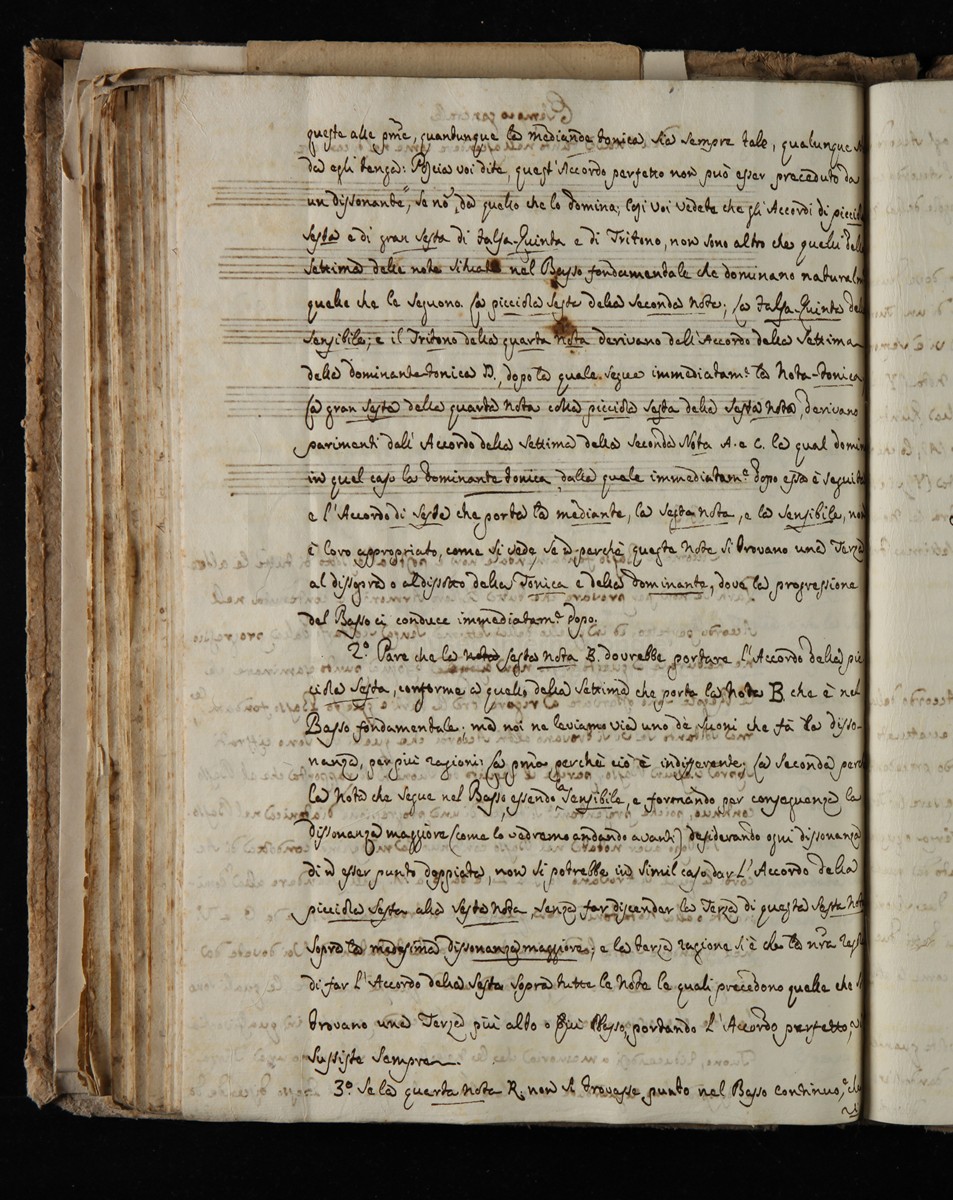 queste alle pme, quantunque la mediande tonica, sia sempre tale, qualunque
da egli tenga: Poscia voi dite, quest'Accordo perfetto non può esser preceduto da
un dissonante, se nò, da quello che lo domina; Così voi vedete che gli Accordi di piccio
Sesta e di gran Sesta di falsa-Quinta e di Tritono, non sono altro che quelli dell
Settima delle note situate nel Basso fondamentale che dominano naturalm
quelle che le seguono. La picciola Sesta della Seconda Nota; la falsa-Quinta del
Sensibile; e il Tritono della quarta nota derivano dall'Accordo della Settima
della dominante-tonica D., dopo la quale segue immediatam.e la Nota-tonica
La gran Sesta della quarta Nota colla picciola Sesta della Sesta nota, derivano
parimenti dall'Accordo della Settima della Seconda Nota A. e C. la qual domin
in quel caso la dominante tonica, dalla quale immediatam.e dopo essa è seguita
e l'Accordo di Sesta che porta la mediante, la Sesta nota, e la Sensibile, non
è loro appropriato, come si vede, se perchè queste Note si trovano una Terza
al dissopra o al dissotto della Tonica e della dominante, dove la progressione
del Basso ci conduce immediatam.e dopo.
2.o Pare che la nota Sesta nota B. dovrebbe portare l'Accordo della pic
ciola Sesta, conforme a quello della Settima che porta la Nota B che è nel
Basso fondamentale; ma noi ne leviamo via uno de Suoni che fà la disso-
nanza, per più ragioni: La pma perchè ciò è indifferente; La seconda perc
la Nota che segue nel Basso, essendo la Sensibile, e formando par conseguenza la
dissonanza maggiore (come lo vedremo andando avanti) desiderando ogni dissonanza
di esser punto doppiata, non si potrebbe in simil caso dar l'Accordo della
picciola Sesta alla Sesta nota, senza far discender la Terza di questa Sesta Not
sopra la medesima dissonanza maggiore; e la terza ragione si è che la nra
di far l'Accordo della Sesta sopra tutte le Note le quali precedono quelle che
trovano una Terza più alto o più Basso, portando l'Accordo perfetto,
sussiste sempre.
3.o Se la quarta nota R, non si trovasse punto nel Basso continuo,